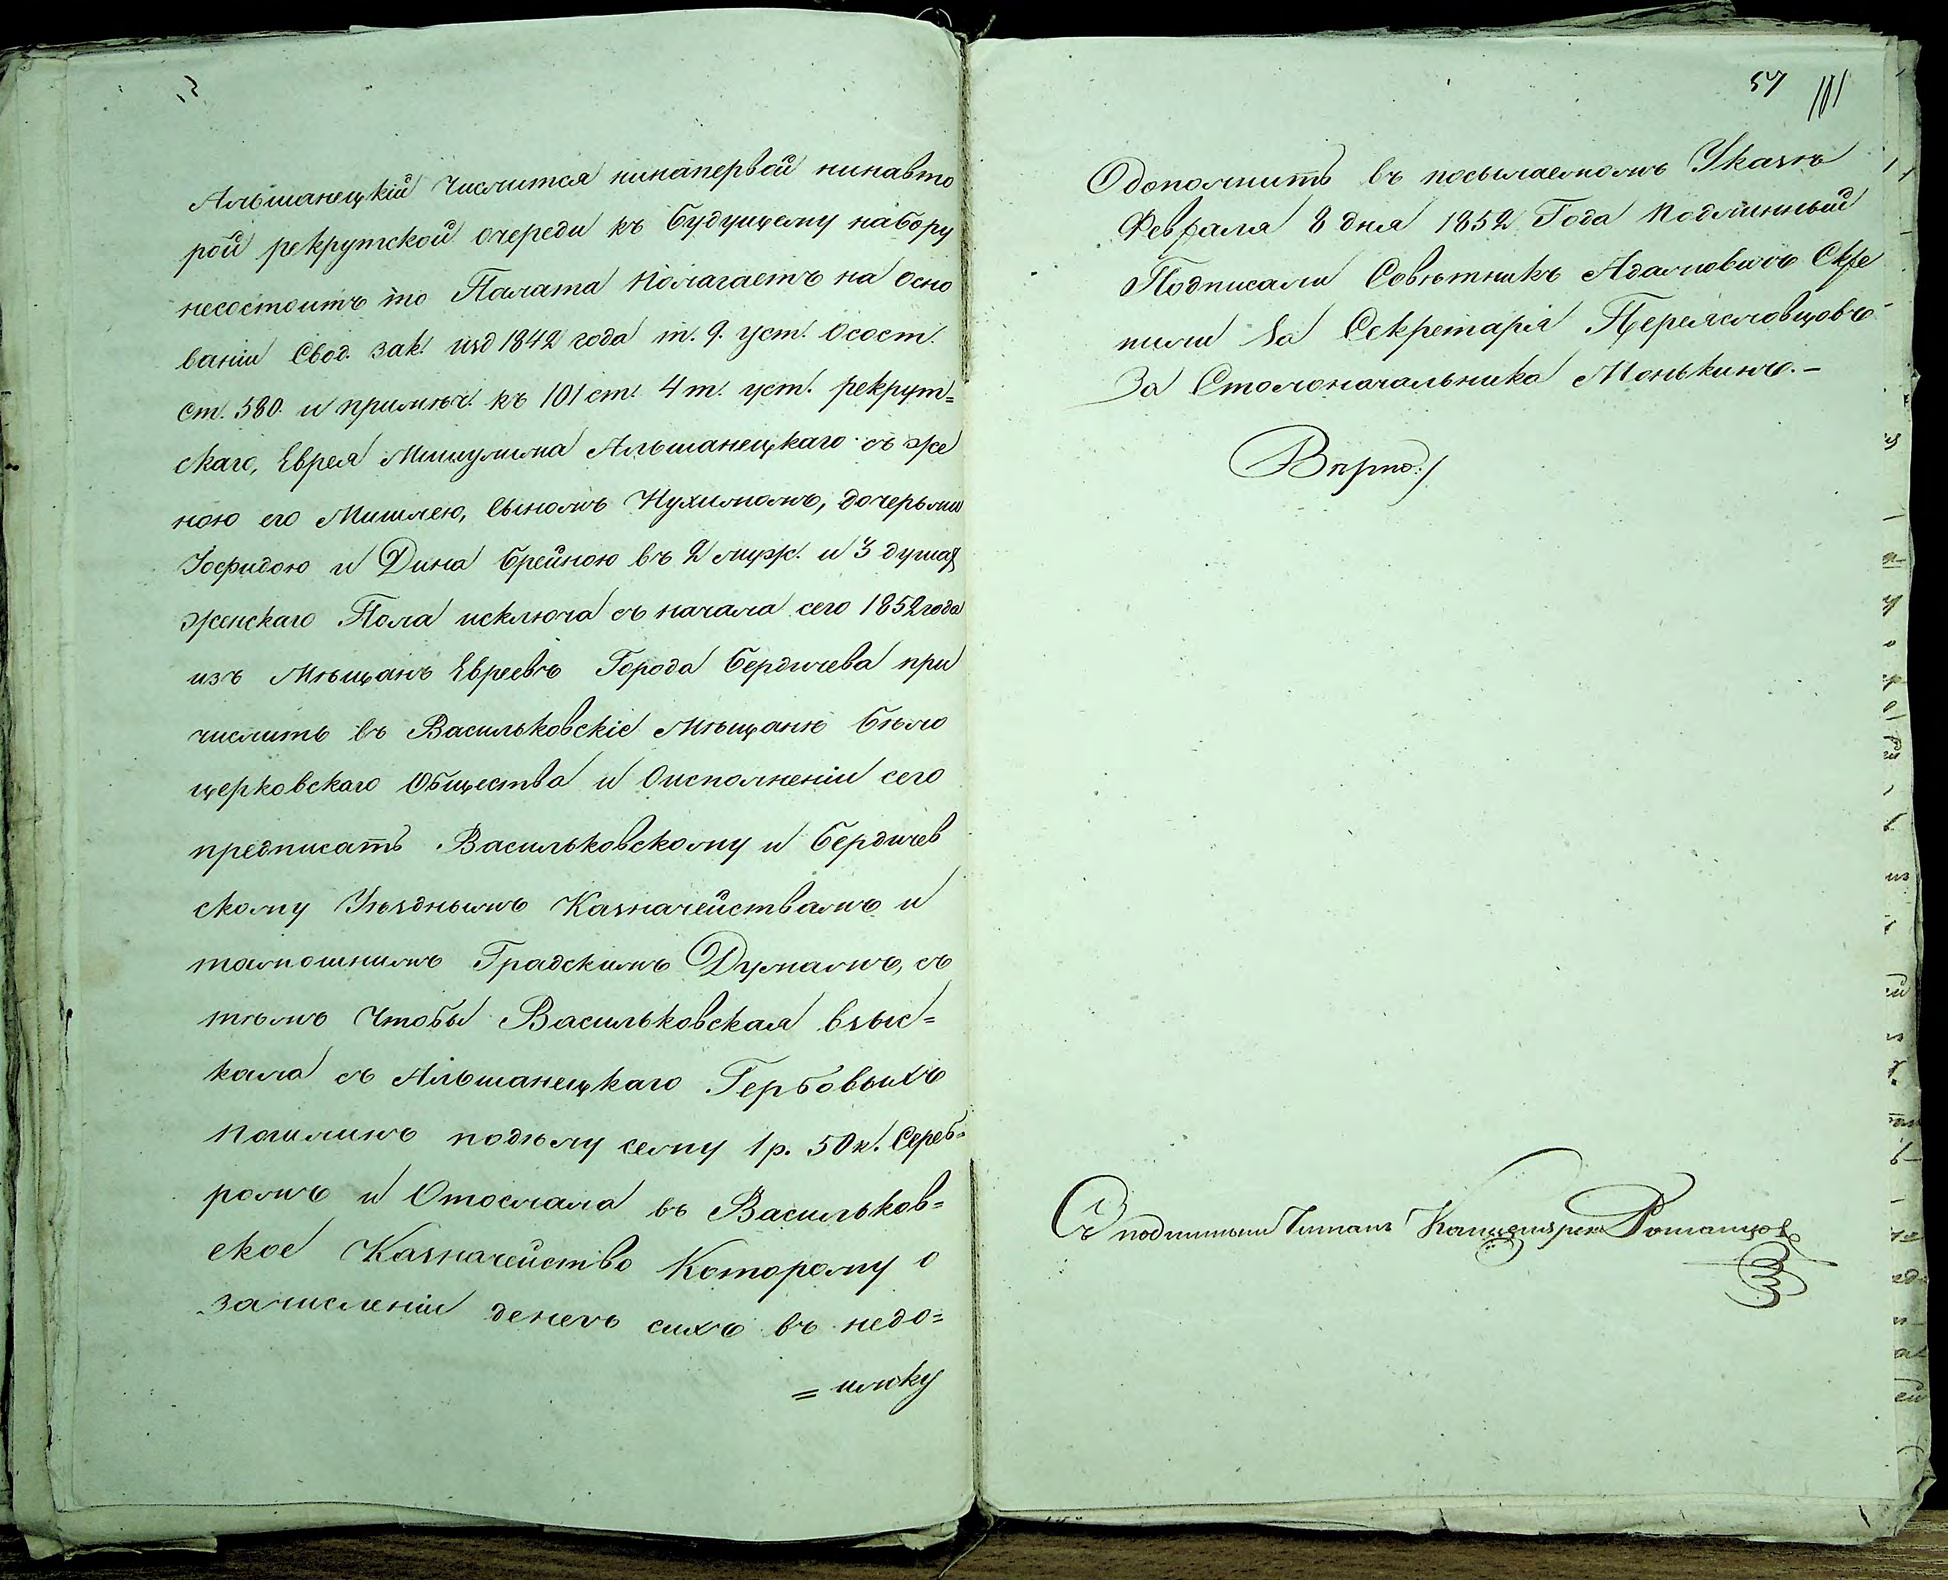 57
101
Альшанецкій числится нинапервой нинавто
рой рекрутской очереди къ будущему набору
несостоитъ то Палата полагаетъ на осно
ваніи Свод. зак. изд 1842 года т. 9. уст. осост.
ст. 580. и примѣч. къ 101 ст. 4 т. уст. рекрут=
скаго, Еврея Мишулима Альшанецкаго съ же
ною его Мишлею, сыномъ Нухимомъ, дочерьми
Іосфидою и Дина Брейною въ 2 муж. и 3 душах
женскаго Пола исключа съ начала сего 1852 года
изъ Мѣщанъ Евреевъ Города Бердичева при
числить въ Васильковскіе Мѣщане Бѣло
церковскаго Общества и Оисполненіи сего
предписать Васильковскому и Бердичев
скому Уѣзднымъ Казначействамъ и
тамошнимъ Градскимъ Думамъ, съ
тѣмъ чтобы Васильковская взыс=
кала съ Альшанецкаго Гербовыхъ
пошлинъ подѣлу сему 1 р. 50 к. Сереб=
ромъ и Отослала въ Васильков=
ское Казначейство Которому о
зачисленіи денегъ сихъ въ недо=
=имку
Одополнить въ посылаемомъ Указѣ
Февраля 8 дня 1852 Года подлинный
Подписали Совѣтникъ Адамовичъ Скре
пили За Секретаря Переясловцовъ
За Столоначальника Монькинъ.-
Вѣрно:/
Съ подлинным Читалъ Канцеляр. Романцов